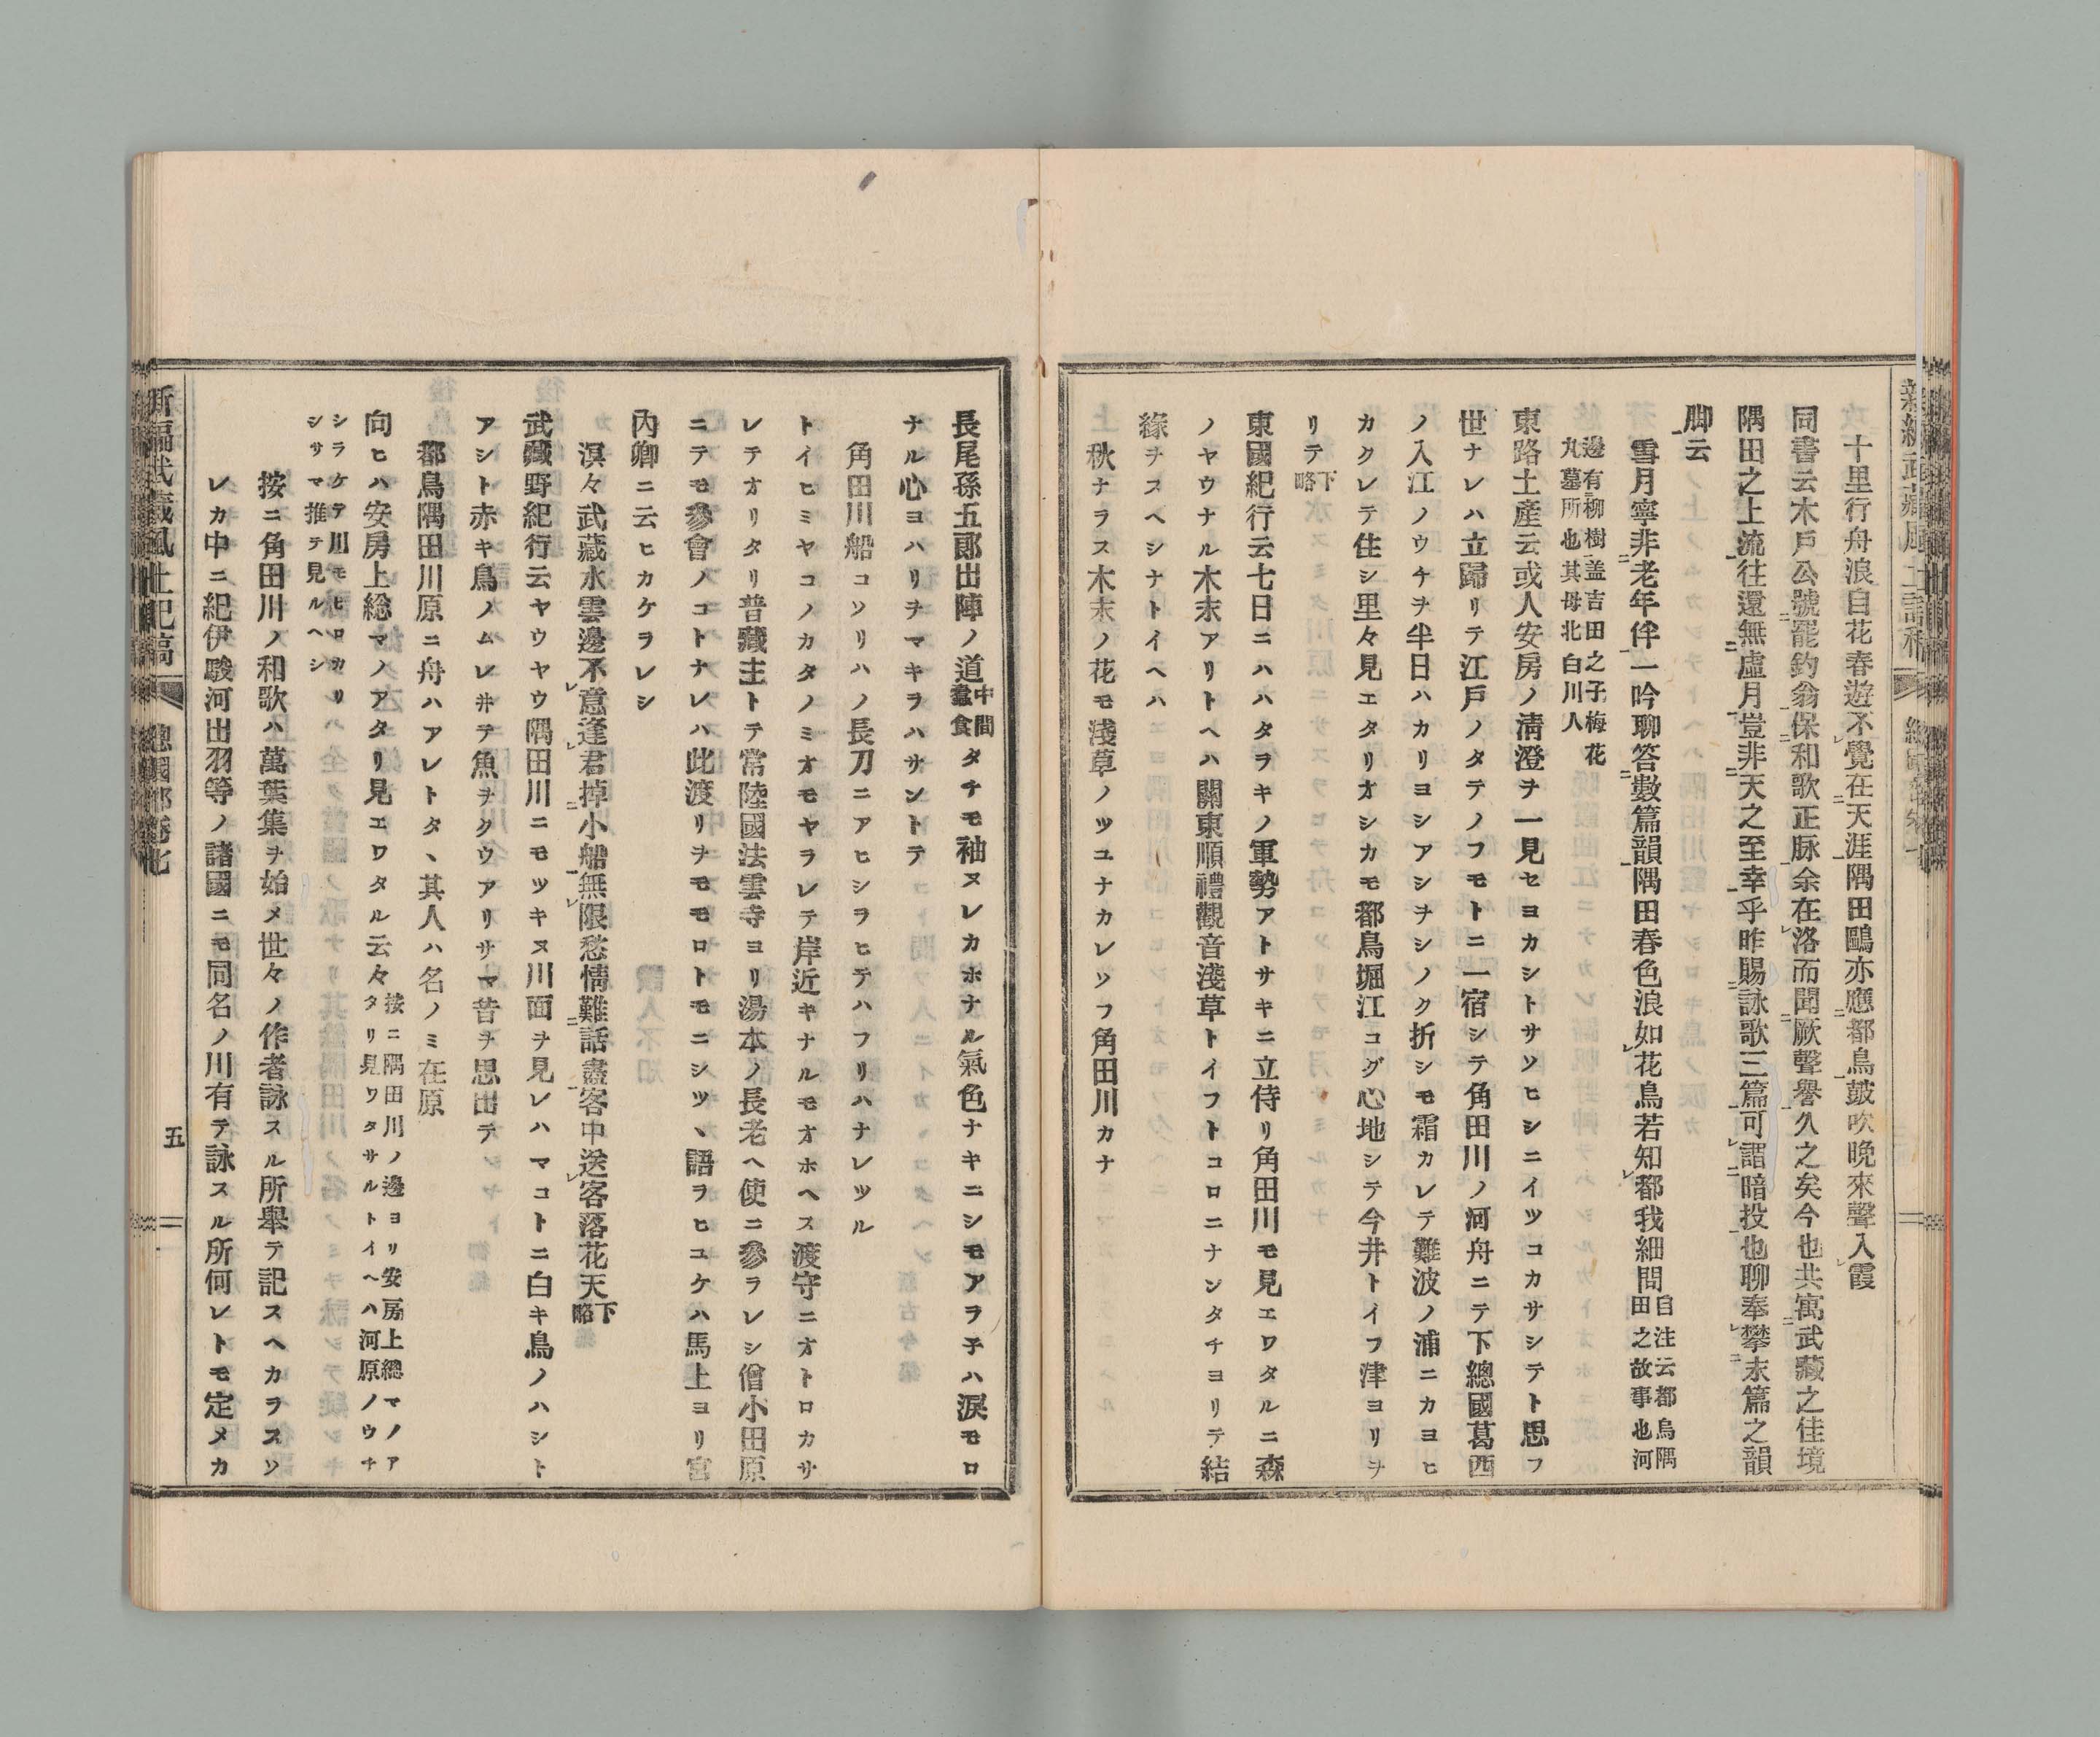 十里行舟浪自花春遊不覺在天涯隅田鷗亦應都鳥皷吹晩來聲入霞
同書云木戶公號罷釣翁保和歌正脉余在洛而聞厥聲譽久之矣今也共寓武藏之佳境
隅田之上流往還無虛月豈非天之至幸乎昨賜詠歌三篇可謂暗投也聊奉攀末篇之韻
脚云
雪月寧非老年伴一吟聊答數篇韻隅田春色浪如花鳥若知都我細問自注云都鳥隅田之故事也河
邊有柳樹盖吉田之子梅花丸墓所也其母北白川人
東路土產云或人安房ノ淸澄ヲ一見セヨカシトサソヒシニイツコカサシテト思フ
世ナレハ立歸リテ江戸ノタテノフモトニ一宿シテ角田川ノ河舟ニテ下總國葛西
ノ入江ノウチヲ半日ハカリヨシアシヲシノク折シモ霜カレテ難波ノ浦ニカヨヒ
カクレテ住シ里々見エタリオシカモ都鳥堀江コグ心地シテ今井トイフ津ヨリヲ
リテ下略
東國紀行云七日ニハハタラキノ軍勢アトサキニ立侍リ角田川モ見エワタルニ森
ノヤウナル木末アリトヘハ關東順禮觀音淺草トイフトコロニナンタチヨリテ結
緣ヲスヘシナトイヘハ
秋ナラス木末ノ花モ淺草ノツユナカレツフ角田川カナ
長尾孫五郎出陣ノ道中間糞食タチモ袖ヌレカホナル氣色ナキニシモアラ子ハ淚モロ
ナル心ヨハリヲマキラハサントテ
角田川船コソリハノ長刀ニアヒシラヒテハフリハナレツル
トイヒミヤコノカタノミオモヤラレテ岸近キナルモオホヘス渡守ニオトロカサ
レテオリタリ普藏主トテ常陸國法雲寺ヨリ湯本ノ長老ヘ使ニ參ラレシ僧小田原
ニテモ參會ノコトナレハ此渡リヲモモロトモニシツヽ語ラヒユケハ馬上ヨリ宮
內卿ニ云ヒカケラレシ
溟々武藏水雲邊不意逢君掉小船無限愁情難話盡客中送客落花天下略
武藏野紀行云ヤウヤウ隅田川ニモツキヌ川面ヲ見レハマコトニ白キ鳥ノハシト
アシト赤キ鳥ノムレ井テ魚ヲクウアリサマ昔ヲ思出テ
都鳥隅田川原ニ舟ハアレトタヽ其人ハ名ノミ在原
向ヒハ安房上総マノアタリ見エワタル云々按ニ隅田川ノ邊ヨリ安房上總マノアタリ見ワタサルトイヘハ河原ノウチ
シラケテ川モヒロカリシサマ推テ見ルヘシ
按ニ角田川ノ和歌ハ萬葉集ヲ始メ世々ノ作者詠スル所擧テ記スヘカラスソ
レカ中ニ紀伊駿河出羽等ノ諸國ニモ同名ノ川有テ詠スル所何レトモ定メカ
新編武藏風土記稿 總國部卷七
五